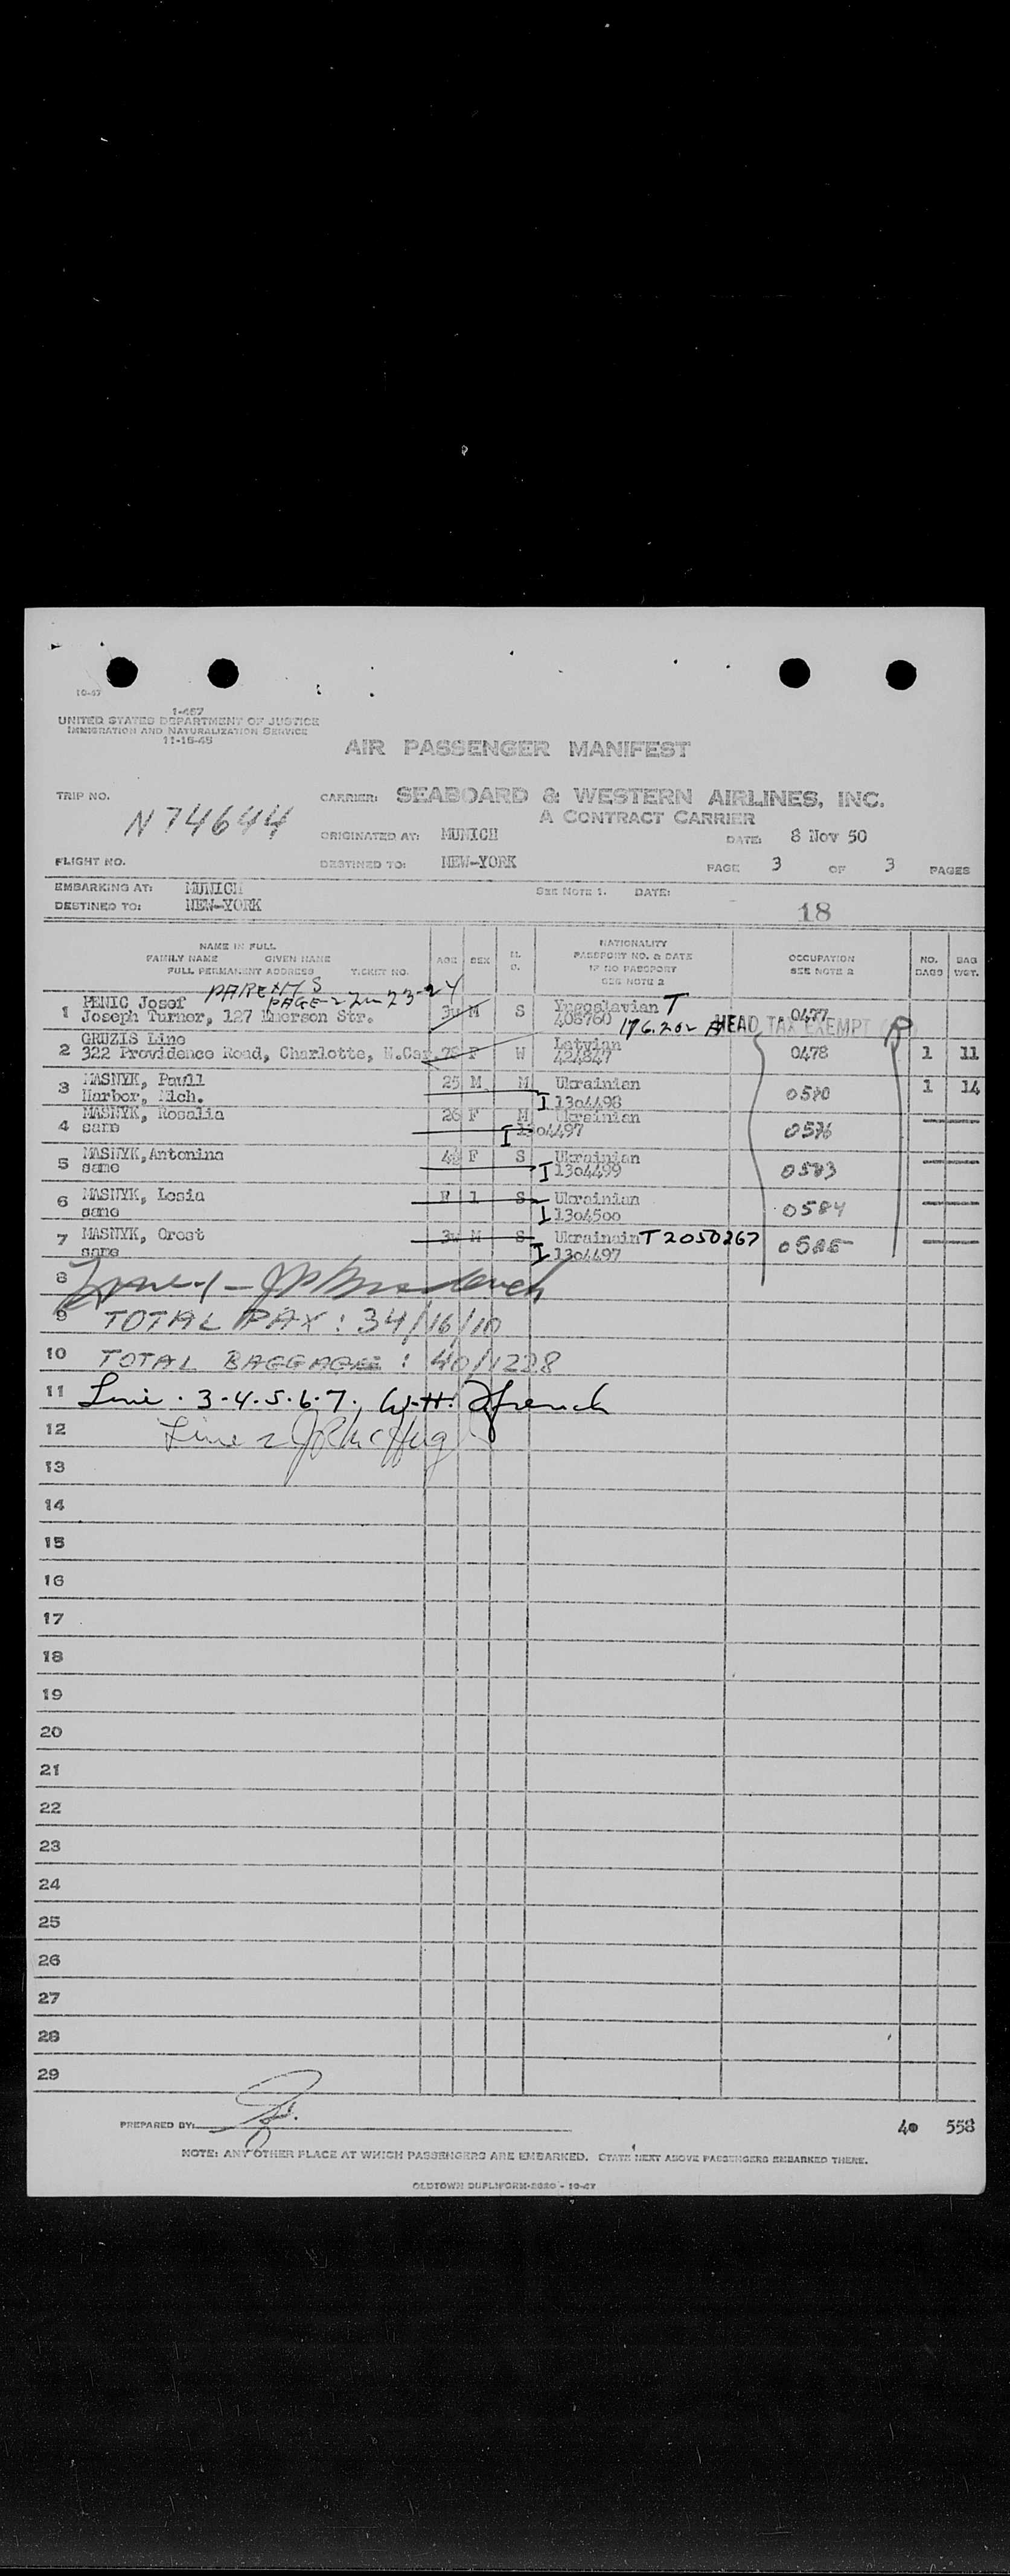 10-47
1-457
UNITED STATES DEPARTMENT OF JUSTICE
IMMIGRATION AND NATURALIZATION SERVICE
11-15-45
AIR PASSENGER MANIFEST
TRIP NO. N74644
CARRIER: SEABOARD & WESTERN AIRLINES, INC.
A CONTRACT CARRIER
ORIGINATED AT: MUNICH DATE: 8 Nov 50
FLIGHT NO. DESTINED TO: NEW-YORK PAGE 3 OF 3 PAGES
EMBARKING AT: MUNICH SEE NOTE 1. DATE:
DESTINED TO: NEW-YORK 18
NAME IN FULL
FAMILY NAME GIVEN NAME
FULL PERMANENT ADDRESS TICKET NO.
AGE SEX M. S. NATIONALITY
PASSPORT NO. & DATE
IF NO PASSPORT
SEE NOTE 2
OCCUPATION
SEE NOTE 2
NO. BAGS BAG WGT.
PARENTS
PAGE-2 23-24
1 PENIC Josef M S Yugoslavian T
Joseph Turner, 127 Emerson Str. 408760 176.202 0477
HEAD TAX EXEMPT
2 GRUZIS Line F W Latvian 0478 1 11
322 Providence Road, Charlotte, N.Car. 78 424847
3 MASNYK, Paull 25 M M Ukrainian 0580 1 14
Harbor, Mich. I 1304498
4 MASNYK, Rosalia 26 F M Ukrainian 0576
same I 1304497
5 MASNYK, Antonina F S Ukrainian 0583
same I 1304499
6 MASNYK, Lesia F 1 S Ukrainian 0584
same I 1304500
7 MASNYK, Orest M S Ukrainain T2050267
same I 1304497
8
9 TOTAL PAX: 34/16/10
10 TOTAL BAGGAGE: 40/1228
11 Line. 3-4.5.6.7, W.H. French
12 Line 2
13
14
15
16
17
18
19
20
21
22
23
24
25
26
27
28
29
PREPARED BY: 40 558
NOTE: ANY OTHER PLACE AT WHICH PASSENGERS ARE EMBARKED. STATE NEXT ABOVE PASSENGERS EMBARKED THERE.
OLDTOWN DUPLIFORM-2620 - 10-47